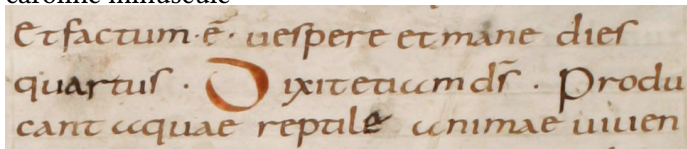 caroline minuscule
Et factum · ē · uespere et mane dies
quartus · Dixit etiam d̄s · Produ
cant aquae reptile animae uiuen